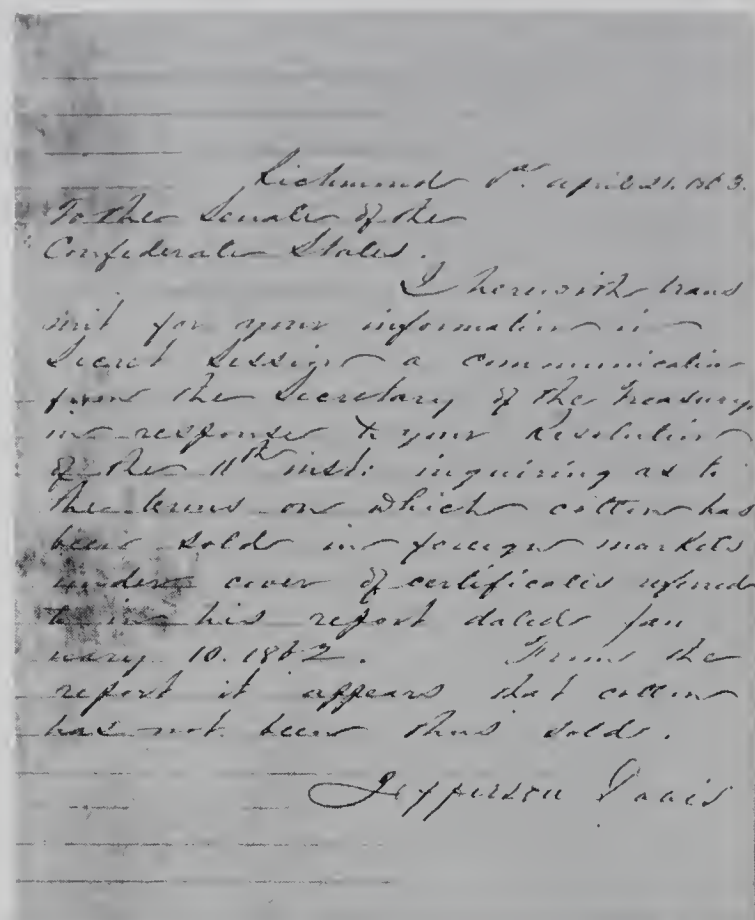 Richmond Va. April 21. 1863.
To the Senate of the
Confederate States.
I herewith trans
mit for your information in
Secret Session a communication
from the Secretary of the Treasury,
in response to your Resolution
of the 11th inst: inquiring as to
the terms on which cotton has
been sold in foreign markets
under cover of certificates referred
to in his report dated Jan
uary 10. 1862. From the
report it appears that cotton
has not been thus sold.
Jefferson Davis